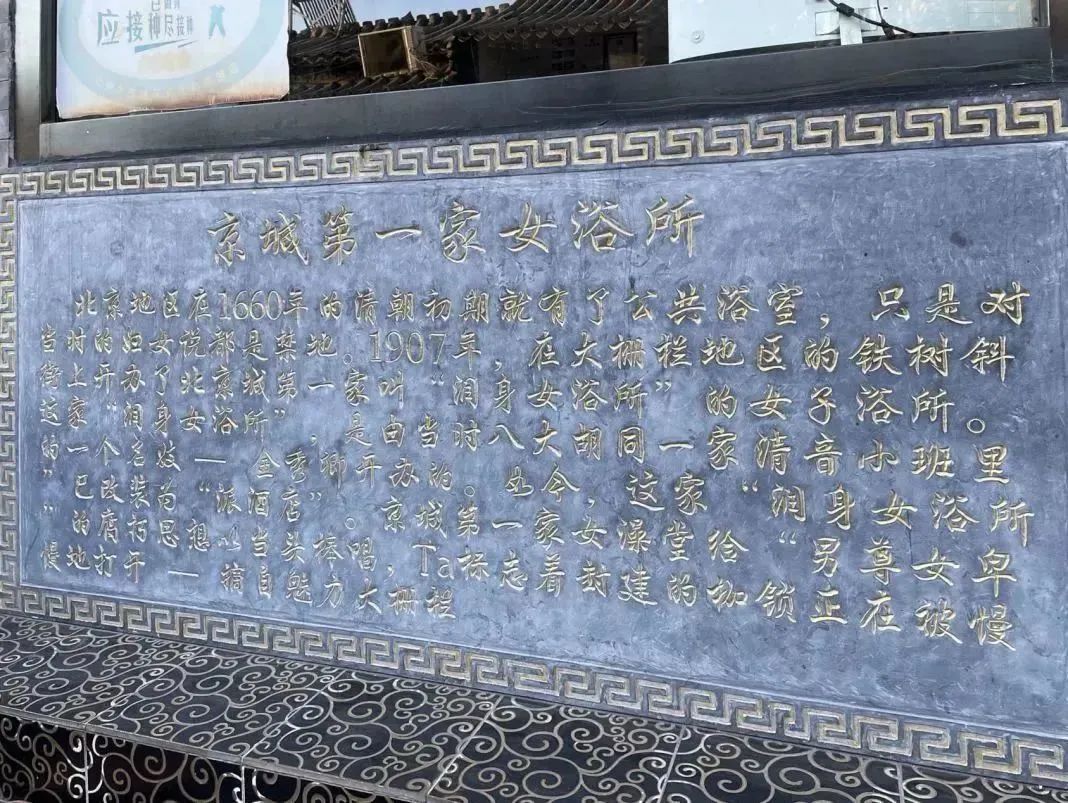 应接种尽接种
京城第一家女浴所
北京地区在1660年的清朝初期就有了公共浴室，只是对
当时的妇女说都是禁地。1907年，在大栅栏地区的铁树斜
街上开办了北京城第一家叫“润身女浴所”的女子浴所。
这家“润身女浴所”，是由当时八大胡同一家清音小班里
的一个名妓——金秀卿开办的。如今，这家“润身女浴所
”已改装为“派酒店”。京城第一家女澡堂给“男尊女卑
”的腐朽思想以当头棒喝，Ta标志着封建的枷锁正在被慢
慢地打开——摘自魅力大栅栏